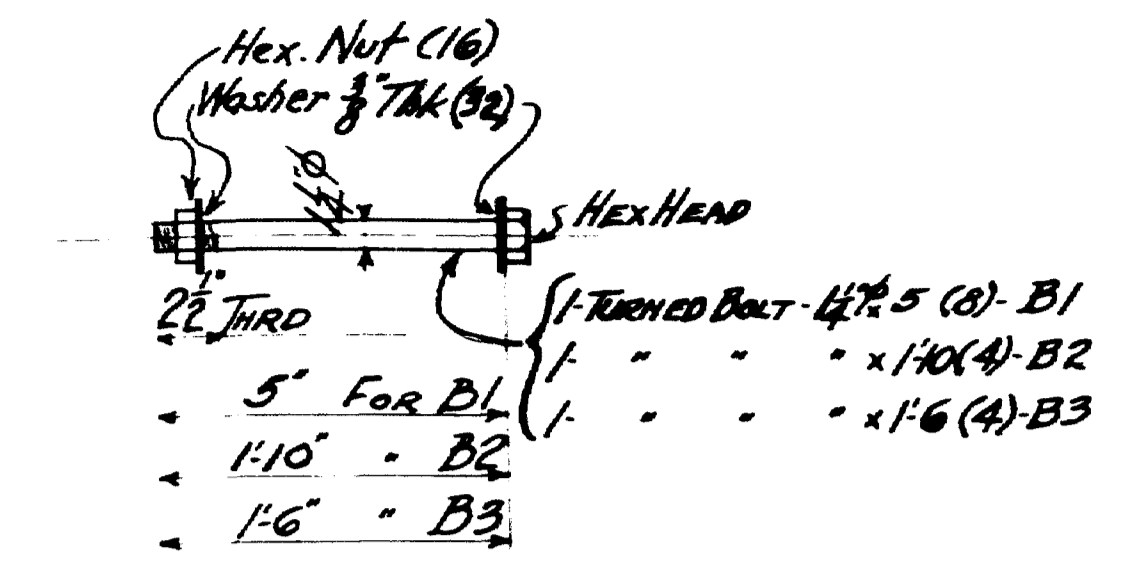 Hex. Nut (16)
Washer 3/8" Thk (32)
1 1/4"Ø
HEX HEAD
2 1/2" THRD
1-TURNED BOLT - 1 1/4"Ø x 5 (8)- B1
1- " " " x 1'-10 (4)- B2
1- " " " x 1'-6 (4)-B3
5" FOR B1
1'-10" " B2
1'-6" " B3